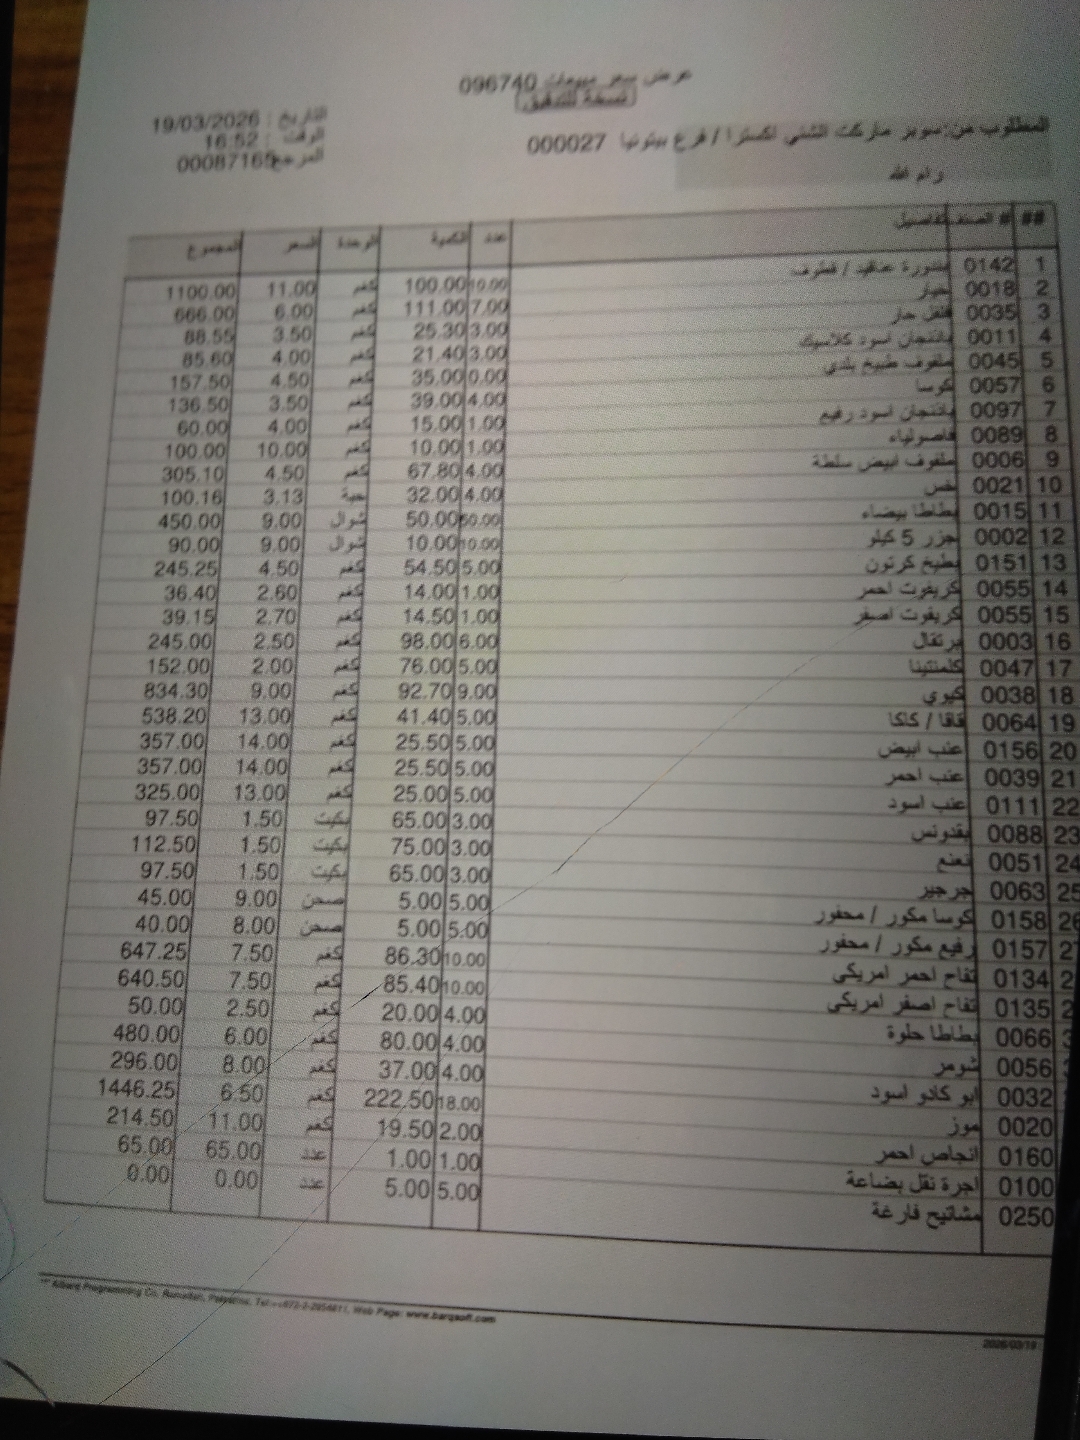 عرض سعر مبيعات 096740
نسخة للتدقيق
التاريخ : 19/03/2026
الوقت : 16:52
المرجع 00087165
المطلوب من: سوبر ماركت الشني اكسترا / فرع بيتونيا 000027
رام الله
## # الصنف تفاصيل عدد الكمية الوحدة السعر المجموع
1 0142 بندورة عناقيد / قطوف 10.00 100.00 كغم 11.00 1100.00
2 0018 خيار 7.00 111.00 كغم 6.00 666.00
3 0035 فلفل حار 3.00 25.30 كغم 3.50 88.55
4 0011 باذنجان اسود كلاسيك 3.00 21.40 كغم 4.00 85.60
5 0045 ملفوف طبيخ بلدي 0.00 35.00 كغم 4.50 157.50
6 0057 كوسا 4.00 39.00 كغم 3.50 136.50
7 0097 باذنجان اسود رفيع 1.00 15.00 كغم 4.00 60.00
8 0089 فاصولياء 1.00 10.00 كغم 10.00 100.00
9 0006 ملفوف ابيض سلطة 4.00 67.80 كغم 4.50 305.10
10 0021 خس 4.00 32.00 حبة 3.13 100.16
11 0015 بطاطا بيضاء 50.00 50.00 شوال 9.00 450.00
12 0002 جزر 5 كيلو 10.00 10.00 شوال 9.00 90.00
13 0151 بطيخ كرتون 5.00 54.50 كغم 4.50 245.25
14 0055 كريفوت احمر 1.00 14.00 كغم 2.60 36.40
15 0055 كريفوت اصفر 1.00 14.50 كغم 2.70 39.15
16 0003 برتقال 6.00 98.00 كغم 2.50 245.00
17 0047 كلمنتينا 5.00 76.00 كغم 2.00 152.00
18 0038 كيوي 9.00 92.70 كغم 9.00 834.30
19 0064 قاقا / كاكا 5.00 41.40 كغم 13.00 538.20
20 0156 عنب ابيض 5.00 25.50 كغم 14.00 357.00
21 0039 عنب احمر 5.00 25.50 كغم 14.00 357.00
22 0111 عنب اسود 5.00 25.00 كغم 13.00 325.00
23 0088 بقدونس 3.00 65.00 بكيت 1.50 97.50
24 0051 نعنع 3.00 75.00 بكيت 1.50 112.50
25 0063 جرجير 3.00 65.00 بكيت 1.50 97.50
26 0158 كوسا مكور / محفور 5.00 5.00 صحن 9.00 45.00
27 0157 رفيع مكور / محفور 5.00 5.00 صحن 8.00 40.00
2 0134 تفاح احمر امريكي 10.00 86.30 كغم 7.50 647.25
2 0135 تفاح اصفر امريكي 10.00 85.40 كغم 7.50 640.50
3 0066 بطاطا حلوة 4.00 20.00 كغم 2.50 50.00
0056 شومر 4.00 80.00 كغم 6.00 480.00
0032 ابو كادو اسود 4.00 37.00 كغم 8.00 296.00
0020 موز 18.00 222.50 كغم 6.50 1446.25
0160 انجاص احمر 2.00 19.50 كغم 11.00 214.50
0100 اجرة نقل بضاعة 1.00 1.00 عدد 65.00 65.00
0250 مشاتيح فارغة 5.00 5.00 عدد 0.00 0.00
Programming Co. Ramallah, Palestine, Web Page: www.barqsoft.com
2026/03/19